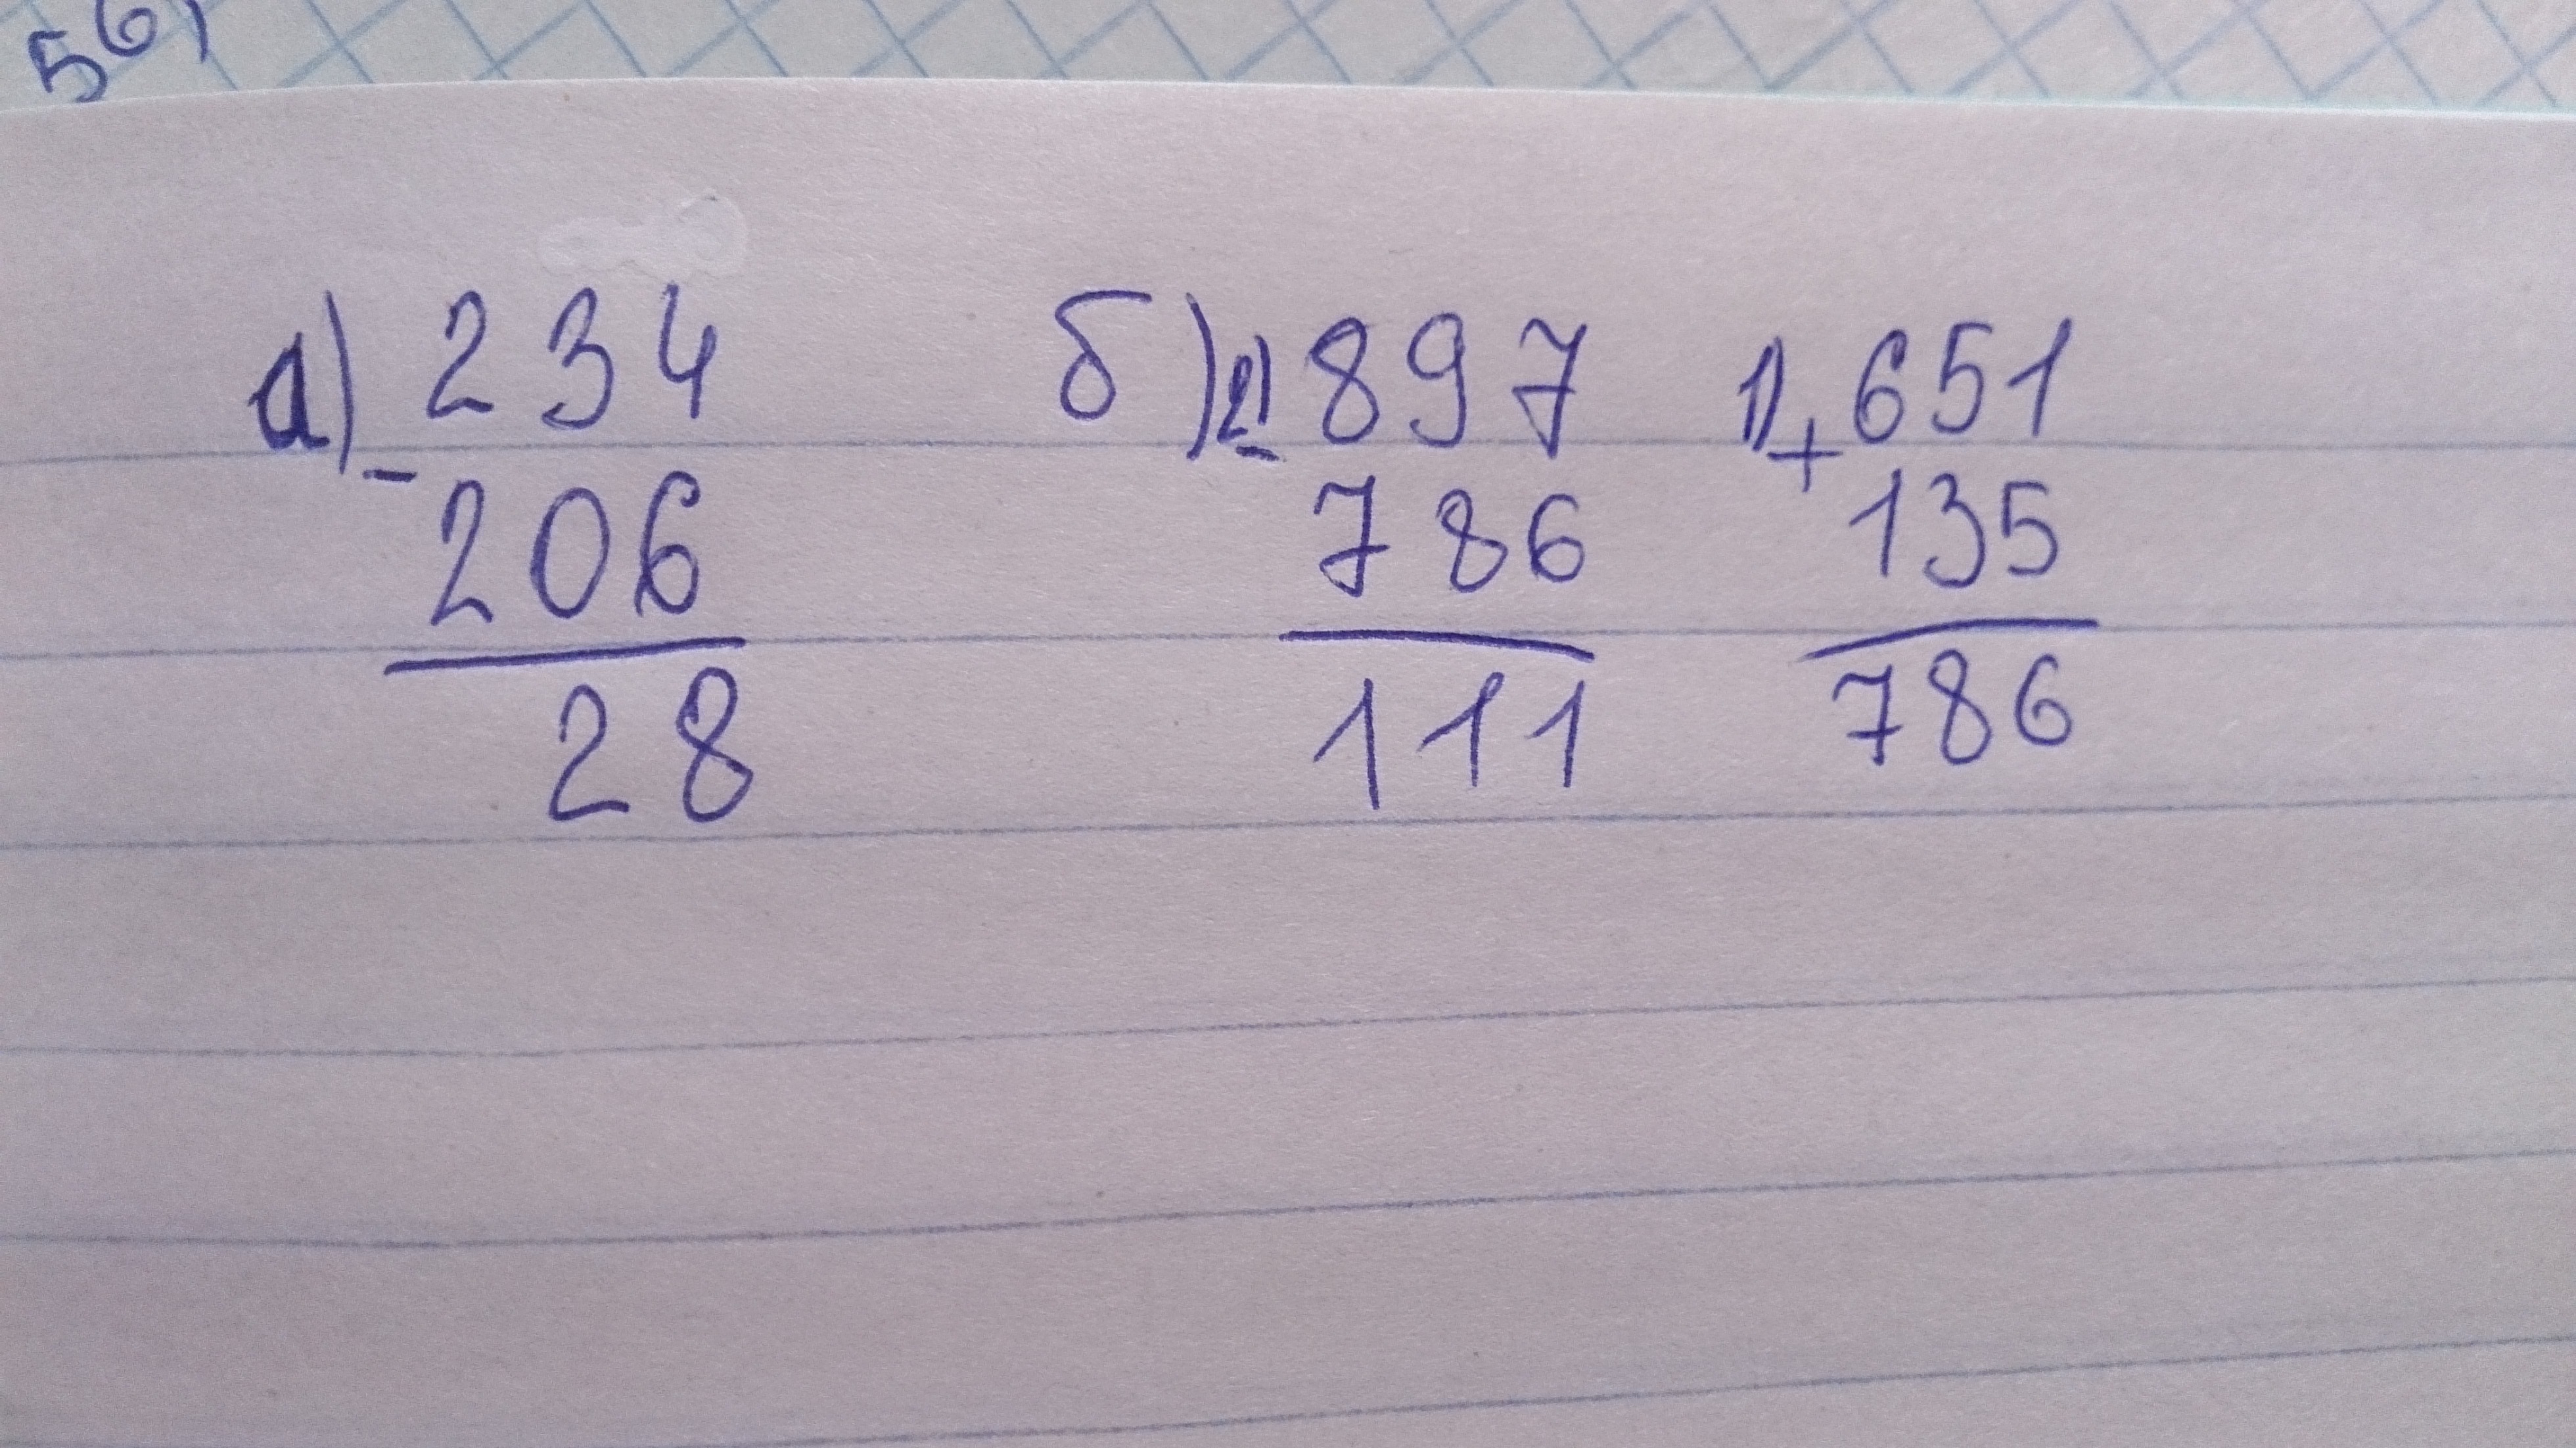 56)
а) 234 б) 2) 897 1) + 651
- 206 - 786 135
28 111 786